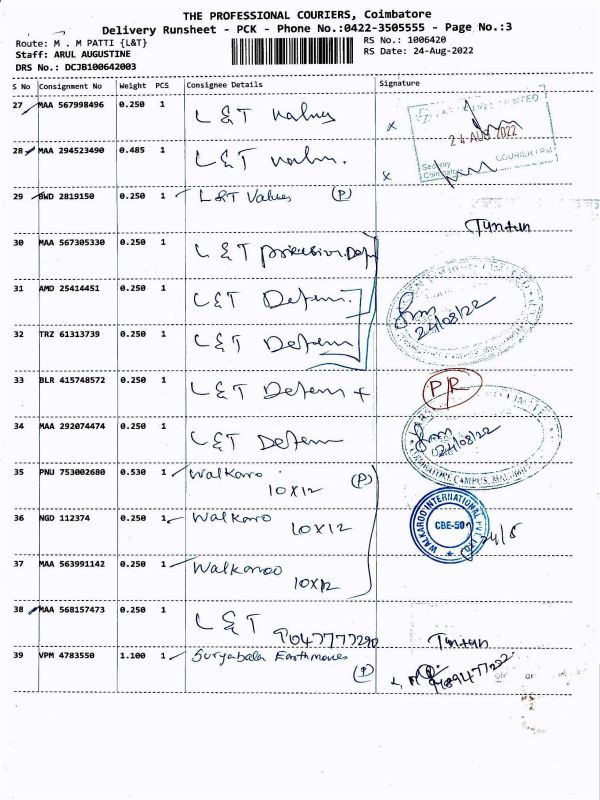 THE PROFESSIONAL COURIERS, Coimbatore
Delivery Runsheet - PCK - Phone No.:0422-3505555 - Page No.:3
Route: M . M PATTI {L&T}
RS No.: 1006420
Staff: ARUL AUGUSTINE
RS Date: 24-Aug-2022
DRS No.: DCJB100642003
S No Consignment No Weight PCS Consignee Details Signature
27 MAA 567998496 0.250 1 L&T Valves
24 AUG 2022
28 MAA 294523490 0.485 1 L&T
Security COURIER
29 BWD 2819150 0.250 1 L&T Valves (P)
30 MAA 567305330 0.250 1 L&T
31 AMD 25414451 0.250 1 L&T Defen
24/08/22
32 TRZ 61313739 0.250 1 L&T Defen
33 BLR 415748572 0.250 1 L&T Defen
PR
34 MAA 292074474 0.250 1 L&T Defen
24/08/22
35 PNU 753002680 0.530 1 Walkaroo (P)
10X12
36 NGD 112374 0.250 1 Walkaroo
10X12
WALKAROO INTERNATIONAL PVT LTD
CBE-50
24/8
37 MAA 563991142 0.250 1 Walkaroo
10X12
38 MAA 568157473 0.250 1 L&T
39 VPM 4783550 1.100 1 Suryabala Earthmoves
(P)